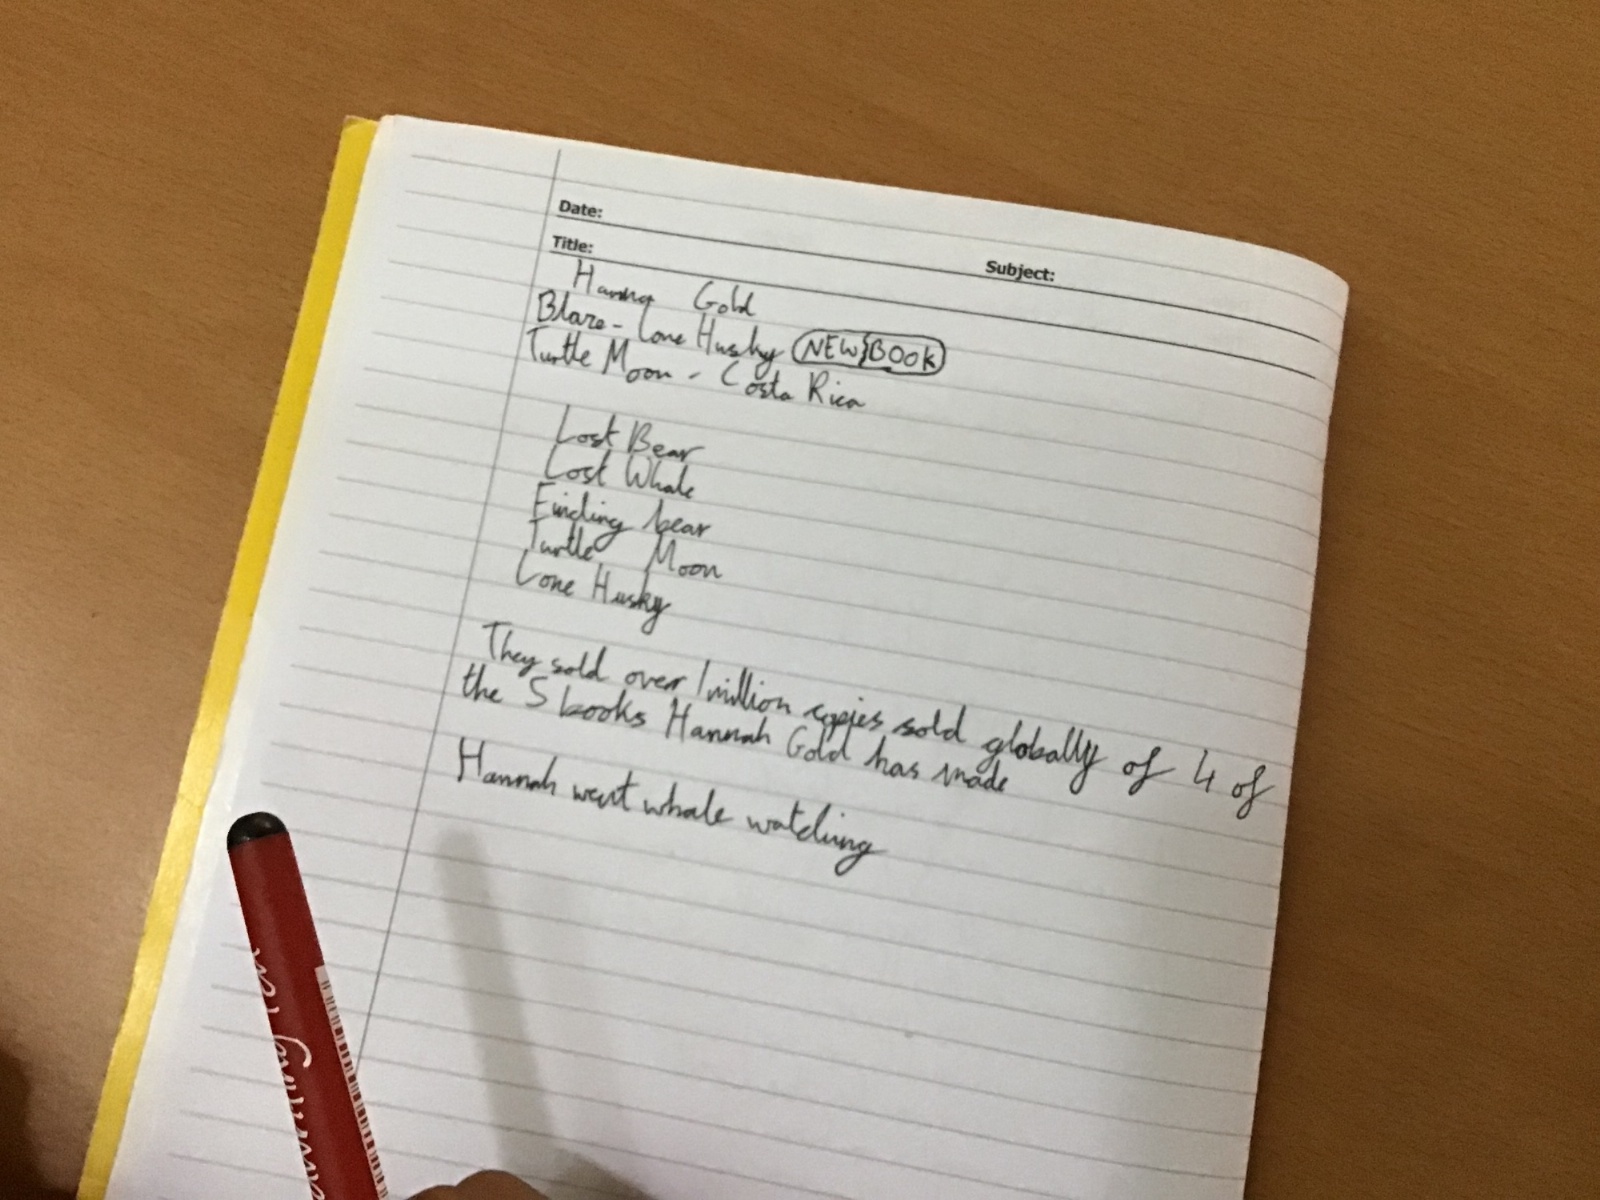 Date:
Title:
Subject:
Hanna Gold
Blaze - Lone Husky NEW BOOK
Turtle Moon - Costa Rica
Lost Bear
Lost Whale
Finding bear
Turtle Moon
Lone Husky
They sold over 1 million copies sold globally of 4 of
the 5 books Hannah Gold has made
Hannah went whale watching